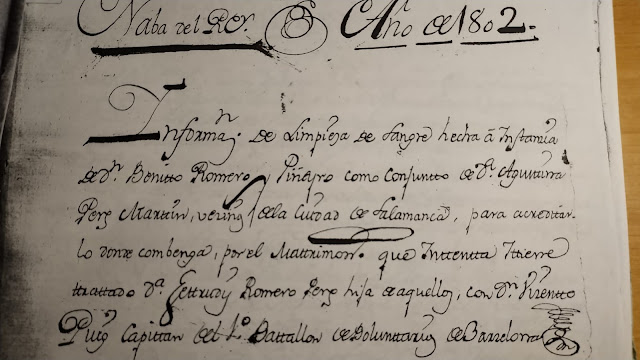 Naba del Rey. Año de 1802.
Informaⁿ. de Limpieza de Sangre hecha â Instania
de Dⁿ. Benitto Romero y Piñeyro como Conjuntto de Dª.
Perez Marttin, vezinos de la Ciudad de Salamanca, para acreditar-
lo donde combenga, por el Mattrimonº. que Inttentta
ttrattado Dª. Romero Perez hija de aquellos, con Dⁿ. Vizentto
Puig Capittan del 1º. Battallon de Bolunttarios de Barzelona